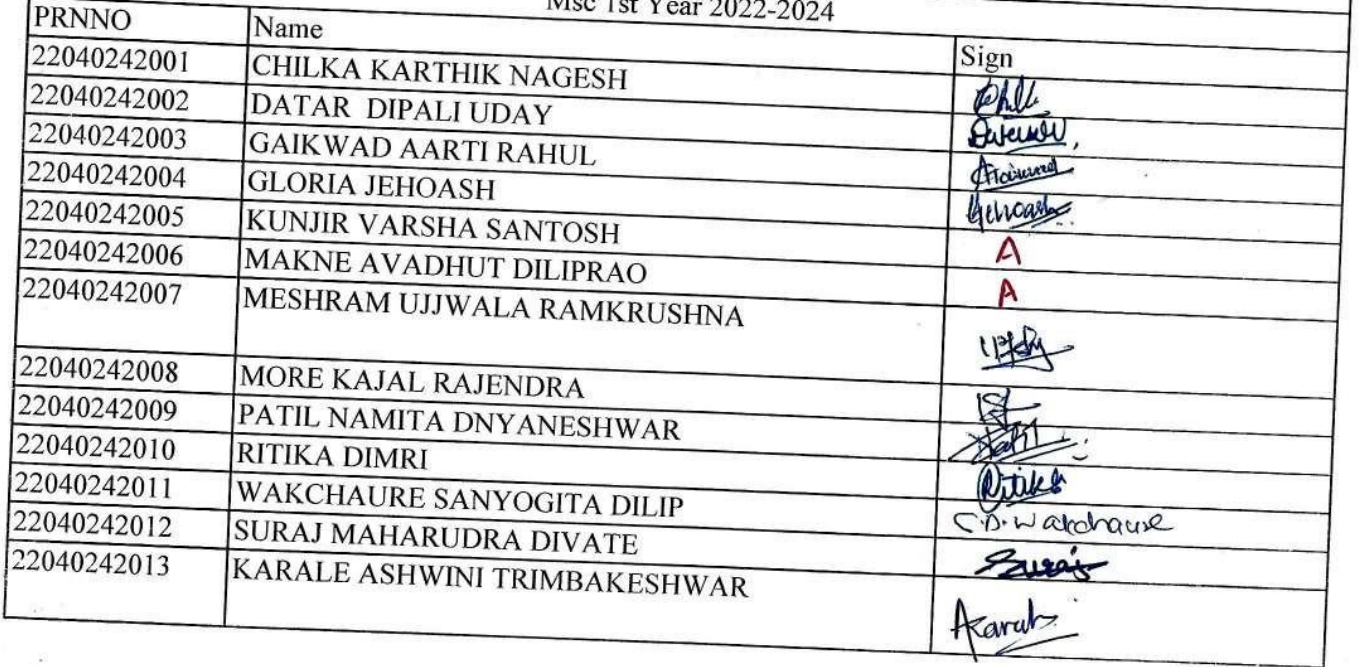 Msc 1st Year 2022-2024
PRNNO Name Sign
22040242001 CHILKA KARTHIK NAGESH
22040242002 DATAR DIPALI UDAY
22040242003 GAIKWAD AARTI RAHUL
22040242004 GLORIA JEHOASH Jehoash
22040242005 KUNJIR VARSHA SANTOSH A
22040242006 MAKNE AVADHUT DILIPRAO A
22040242007 MESHRAM UJJWALA RAMKRUSHNA
22040242008 MORE KAJAL RAJENDRA
22040242009 PATIL NAMITA DNYANESHWAR
22040242010 RITIKA DIMRI Ritika
22040242011 WAKCHAURE SANYOGITA DILIP S.D. Wakchaure
22040242012 SURAJ MAHARUDRA DIVATE Suraj
22040242013 KARALE ASHWINI TRIMBAKESHWAR